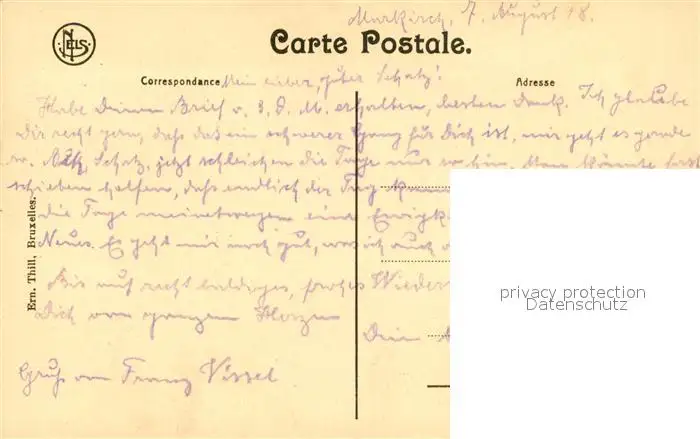 Markirch, 7. August 18.
NELS
Carte Postale.
Correspondance
Adresse
Mein lieber, guter Schatz!
Habe Deinen Brief v. 3. d. M. erhalten, besten Dank. Ich glaube
Dir recht gern, dass das ein schwerer Gang für Dich ist, mir geht es gerade
so. Ach, Schatz, jetzt schleichen die Tage nur so hin. Man könnte fast
schieben helfen, dass endlich der Tag
die Tage meinetwegen eine
Neues. Es geht mir noch gut, was ich auch
Bis auf recht baldiges, frohes
Dich von ganzem Herzen
Dein
Gruß von Franz Vissel
Ern. Thill, Bruxelles.
privacy protection
Datenschutz